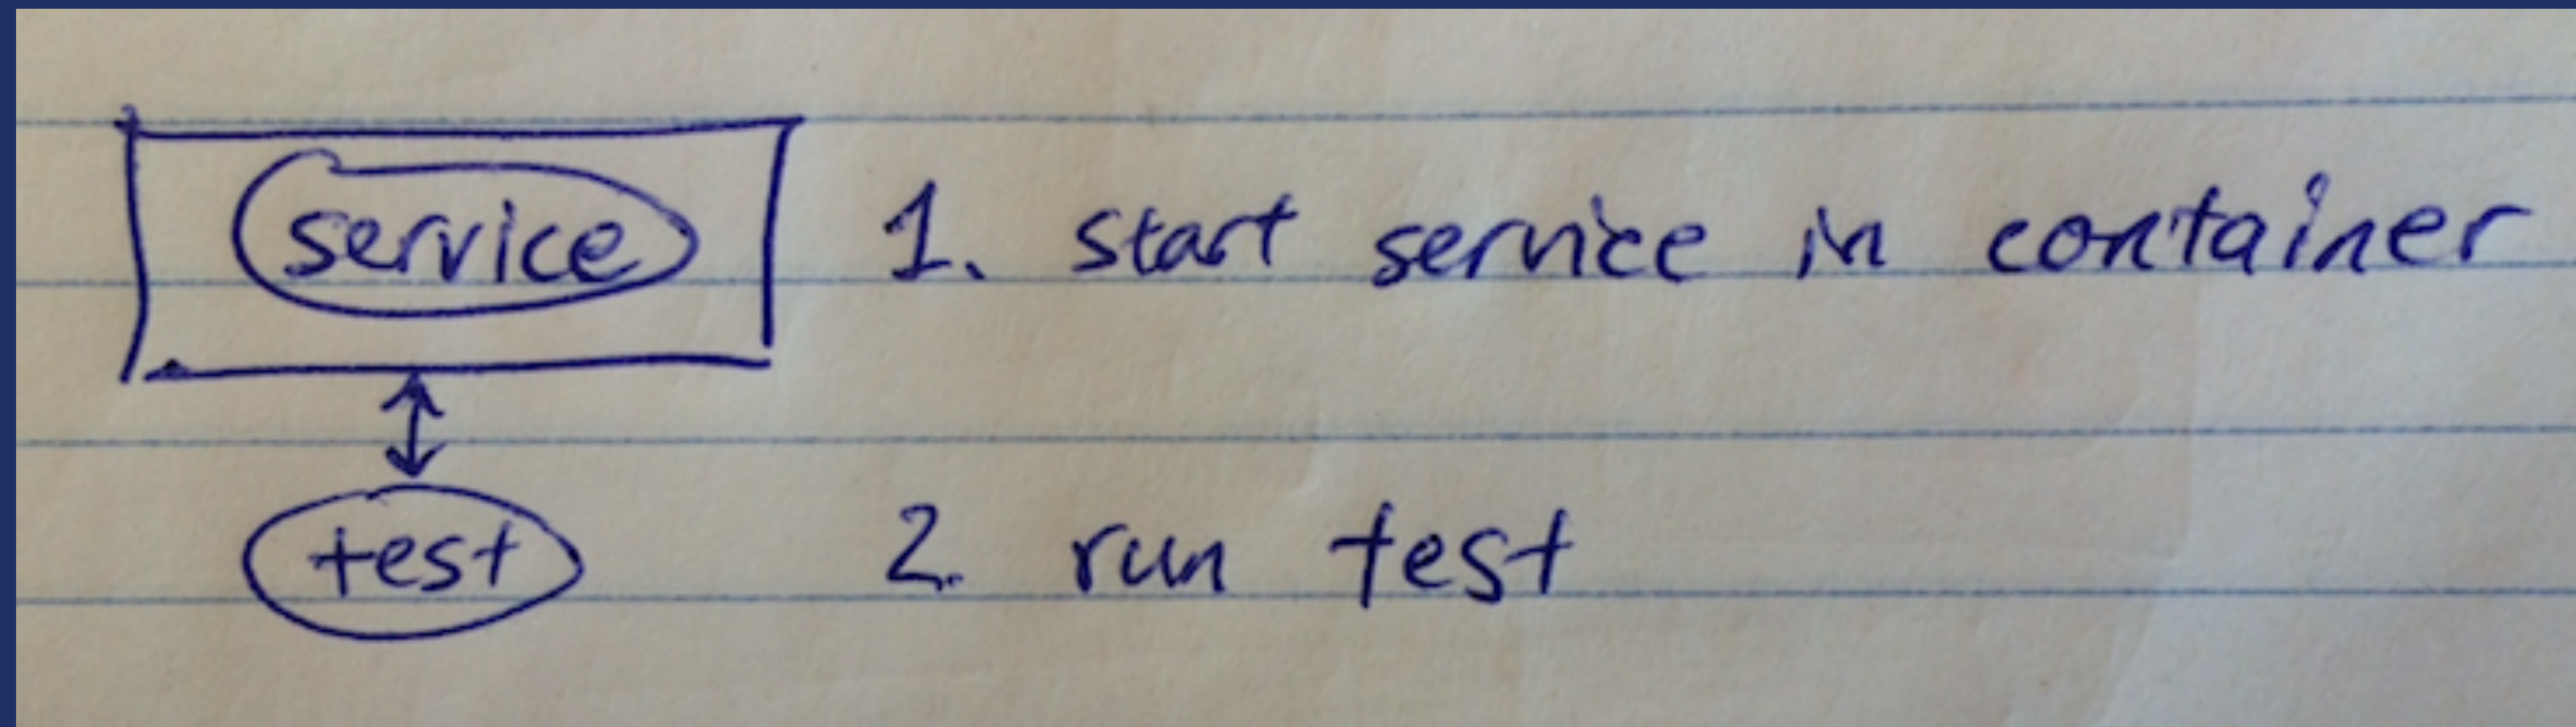 service
1. start service in container
test
2. run test